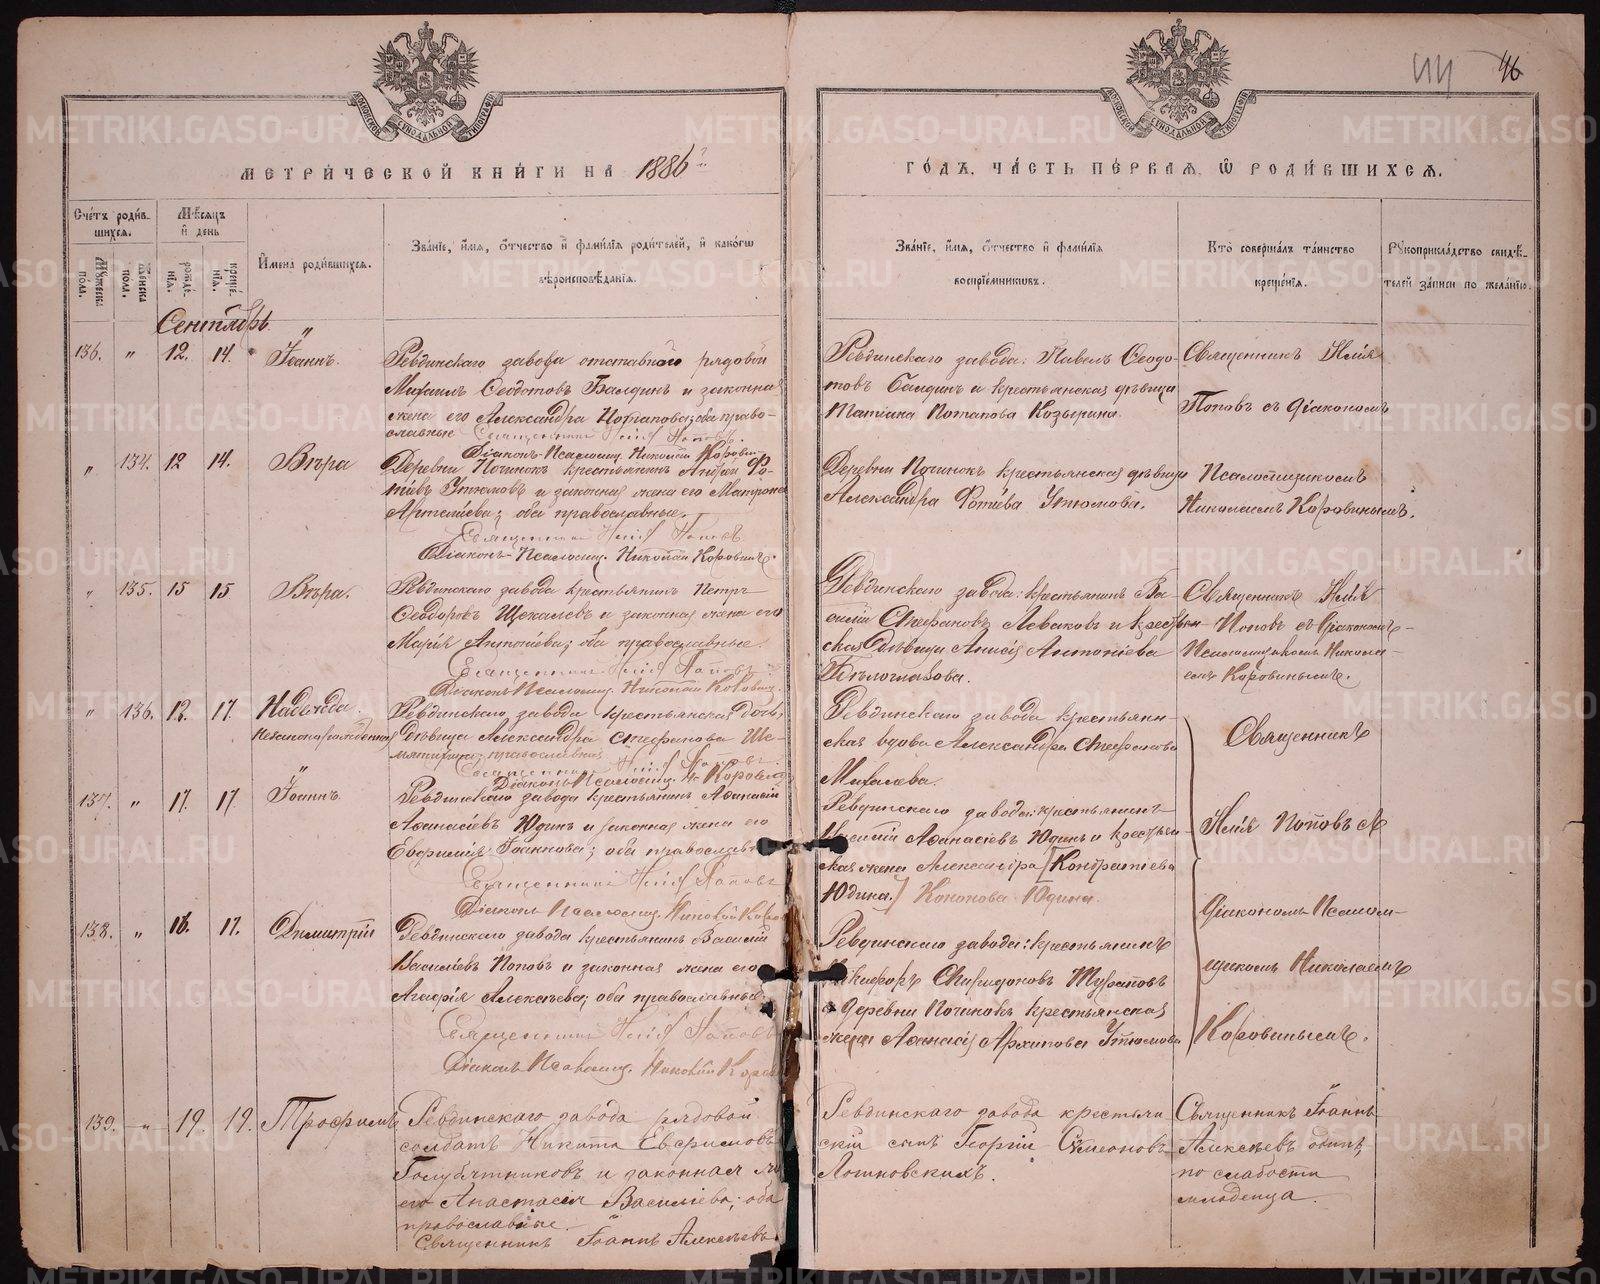 44 46
МОСКОВСКОЙ СѴНОДАЛЬНОЙ ТИПОГРАФІИ
МОСКОВСКОЙ СѴНОДАЛЬНОЙ ТИПОГРАФІИ
МЕТРИ́ЧЕСКОЙ КНИ́ГИ НА 1886 г.
ГО́ДЪ, ЧА́СТЬ ПЕ́РВАЯ, Ѡ РОДИ́ВШИХСЯ.
Сче́тъ роди́в-
шихся.
Му́жеска по́ла.
Же́нска по́ла.
Мѣ́сяцъ
и день
рожде́-
нія.
креще́-
нія.
Имена роди́вшихся.
Зва́ніе, и́мя, о́тчество и фами́лія роди́телей, и како́гѡ
вѣроисповѣ́данія.
Зва́ніе, и́мя, о́тчество и фами́лія
воспріе́мниковъ.
Кто̀ соверша́лъ та́инство
креще́нія.
Рꙋкоприкла́дство свидѣ́-
телей за́писи по жела́нію.
Сентябрь
136. " 12. 14. Іоаннъ.
Ревдинскаго завода отставной рядовой
Михаилъ Ѳеодотовъ Балдинъ и законная
жена его Александра Потапова; оба право-
славные Священникъ Илія Поповъ.
Діаконъ-Псаломщ. Николай Коровинъ.
Ревдинскаго завода: Павелъ Ѳеодо-
товъ Балдинъ и крестьянская дѣвица
Татіана Потапова Козырина.
Священникъ Илія
Поповъ съ діакономъ
" 134. 12 14. Вѣра
Деревни Починокъ крестьянинъ Андрей Фо-
тіевъ Утюмовъ и законная жена его Матрона
Артеміева; оба православные.
Священникъ Илія Поповъ
Діаконъ-Псаломщ. Николай Коровинъ.
Деревни Починокъ крестьянская дѣвица
Александра Фотіева Утюмова.
Псаломщикомъ
Николаемъ Коровинымъ.
" 135. 15 15 Вѣра.
Ревдинскаго завода крестьянинъ Петръ
Ѳеодоровъ Щекалевъ и законная жена его
Марія Антоніева; оба православные.
Священникъ Илія Поповъ
Діаконъ-Псаломщ. Николай Коровинъ.
Ревдинскаго завода: крестьянинъ Ва-
силій Стефановъ Леваковъ и крестьян-
ская дѣвица Анисія Антоніева
Бѣлоглазова.
Священникъ Илія
Поповъ съ діакономъ-
Псаломщикомъ Никола-
емъ Коровинымъ.
" 136. 12. 17. Надежда.
Незаконнорожденная
Ревдинскаго завода крестьянская дочь,
дѣвица Александра Стефанова Ше-
православная
Священникъ Илія Поповъ.
Діаконъ-Псаломщ. Н. Коровинъ
Ревдинскаго завода крестьян-
ская вдова Александра Стефанова
Михалева.
Священникъ
137. " 17. 17 Іоаннъ.
Ревдинскаго завода крестьянинъ Аѳанасій
Аѳанасіевъ Юдинъ и законная жена его
Евфимія Іоаннова; оба православные
Священникъ Илія Поповъ
Діаконъ Псаломщ. Николай Коров
Ревдинскаго завода: крестьянинъ
Василій Аѳанасіевъ Юдинъ и крестьян-
ская жена Александра [Кондратіева
Юдина.] Кононова Юдина.
Илія Поповъ съ
Діакономъ Псалом-
138. " 16. 17. Димитрій
Ревдинскаго завода крестьянинъ Василій
Василіевъ Поповъ и законная жена его
Агафія Алексѣева; оба православные
Священникъ Илія Поповъ
Діаконъ Псаломщ. Николай Коров
Ревдинскаго завода: крестьянинъ
Никифоръ Спиридоновъ
и деревни Починокъ крестьянская
жена Аѳанасія Архипова Утюмова
щикомъ Николаемъ
Коровинымъ.
139. " 19. 19. Трофимъ
Ревдинскаго завода рядовой
солдатъ Никита Евфимовъ
Голубятниковъ и законная ж
его Анастасія Василіева; оба
православные.
Священникъ Іоаннъ Алексѣевъ
Ревдинскаго завода крестьян
скій сынъ Георгій Симеоновъ
Лотковскихъ.
Священникъ Іоаннъ
Алексѣевъ одинъ,
по слабости
младенца.